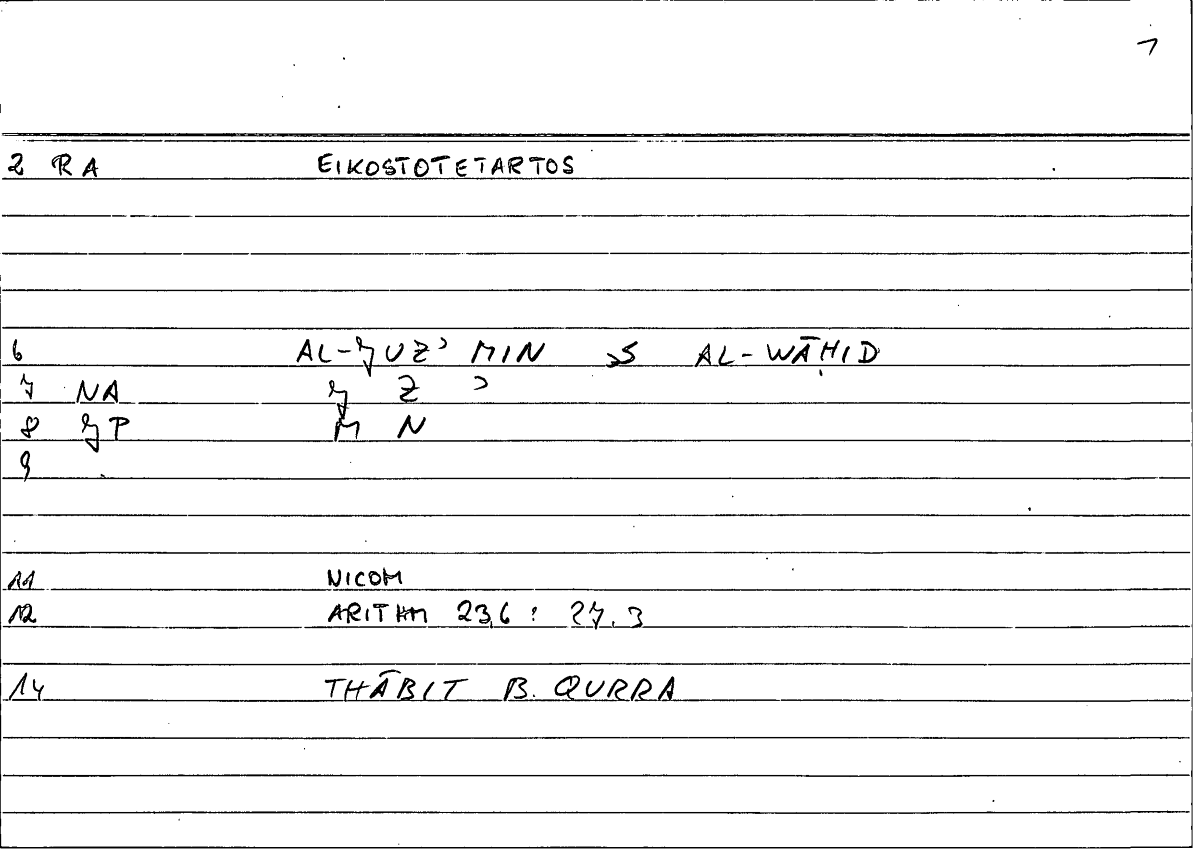 2 RA EIKOSTOTETARTOS
6 AL-JUZʾ MIN AL-WĀḤID
7 NA J Z ʾ
8 JP M N
9
11 NICOM
12 ARITHM 23,6 : 27.3
14 THĀBIT B. QURRA